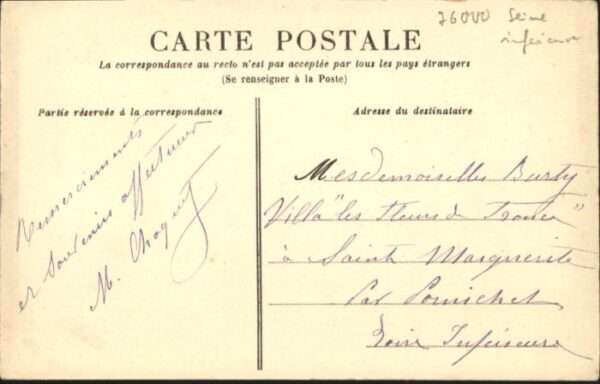 76000 Seine
inférieure
CARTE POSTALE
La correspondance au recto n'est pas acceptée par tous les pays étrangers
(Se renseigner à la Poste)
Partie réservée à la correspondance
Remerciements
et souvenirs affectueux
M. Choquet
Adresse du destinataire
Mesdemoiselles Burty
Villa "les Fleurs de France"
à Saint Marguerite
Par Pornichet
Loire Inférieure